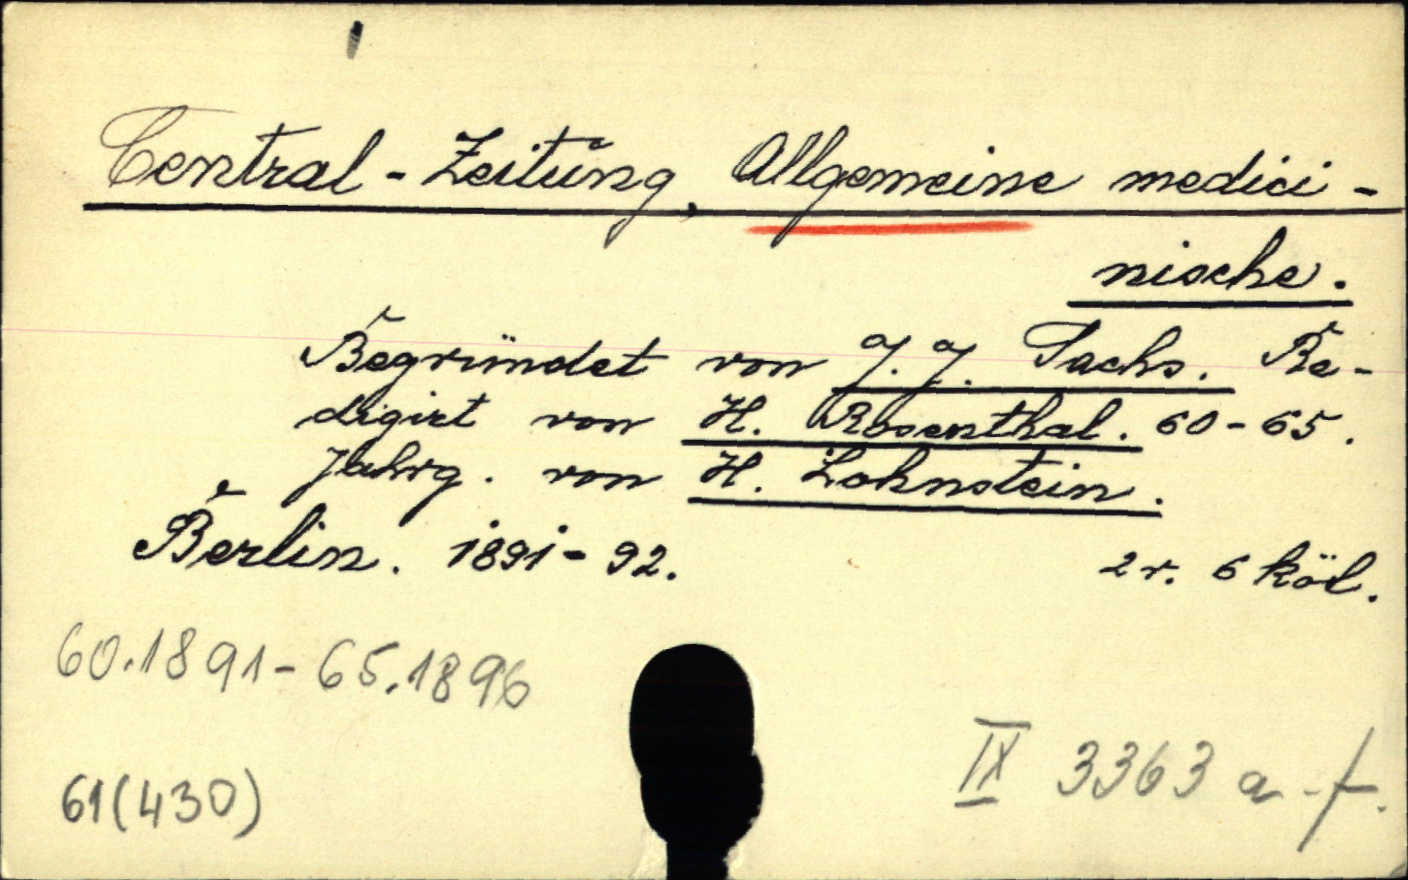 Central-Zeitung, Allgemeine medici-
nische.
Begründet von J. J. Sachs. Re-
digirt von H. Rosenthal. 60-65.
Jahrg. von H. Lohnstein.
Berlin. 1891-92. 2 r. 6 köl.
60.1891-65.1896
IX 3363 a-f.
61(430)